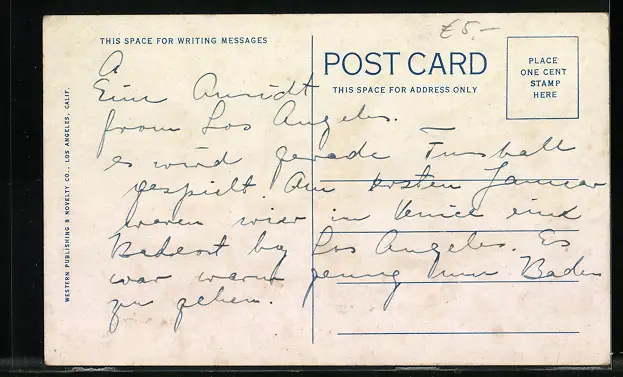 €5,-
THIS SPACE FOR WRITING MESSAGES
POST CARD
THIS SPACE FOR ADDRESS ONLY
PLACE
ONE CENT
STAMP
HERE
WESTERN PUBLISHING & NOVELTY CO., LOS ANGELES, CALIF.
A
Eine Ansicht
from Los Angeles.
es wird gerade Fussball
gespielt. Am ersten Januar
waren wir in Venice eine
Badeort by Los Angeles. Es
war warm genug um Baden
zu gehen.